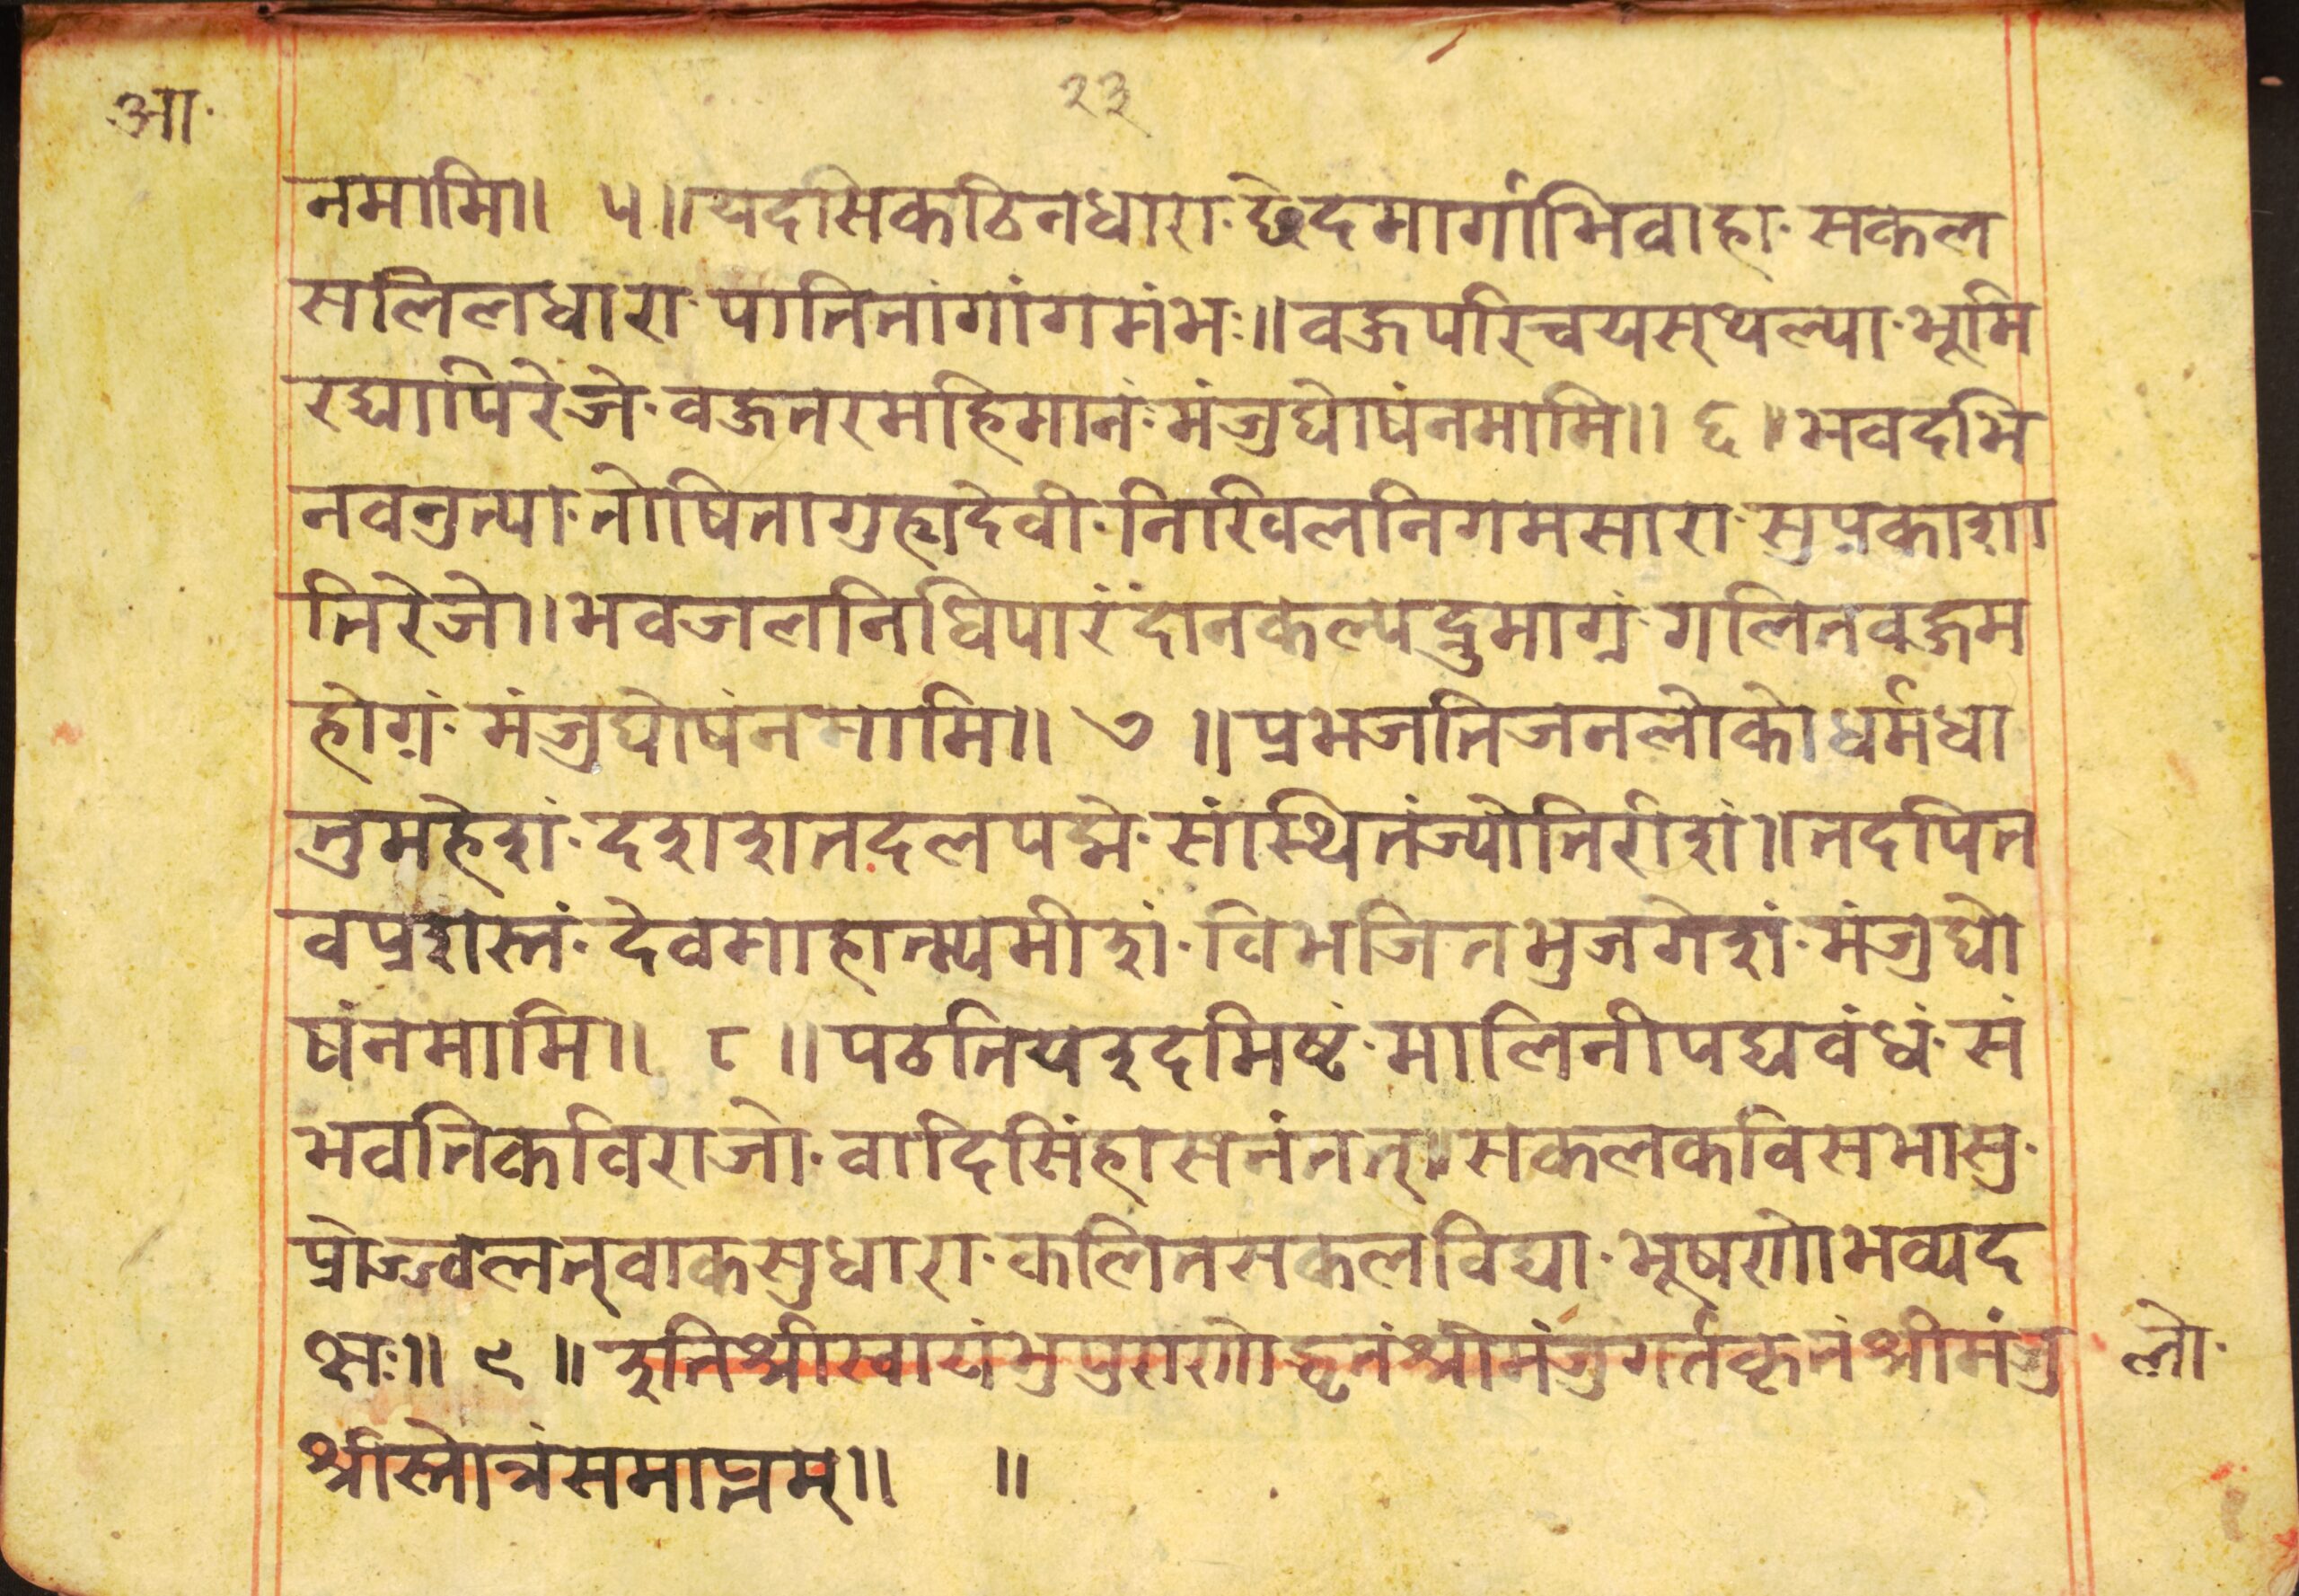 आ·
२३
नमामि॥ ५॥यदसिकठिनधारा·छेदमार्गाभिवाहा·सकल
सलिलधारा·पातितांगांगमंभः॥वज्रपरिचयस्थल्या·भूमि
रद्यापिरेजे·वज्रतरमहिमानं·मंजुघोषंनमामि॥ ६॥भवदभि
नवनुत्या·तोषितागुह्यदेवी·निखिलनिगमसारा·सुप्रकाशा
तिरेजे॥भवजलनिधिपारंदानकल्पद्रुमाग्रं·गलितवज्रम
होग्रं·मंजुघोषंनमामि॥ ७ ॥प्रभजतिजनलोकोधर्मधा
तुमहेशं·दशशतदलपद्मे·संस्थितंज्योतिरीशं॥तदपित
वप्रशस्तं·देवमाहात्म्यमीशं·विभजितभुजगेशं·मंजुघो
षंनमामि॥ ८ ॥पठतियइदमिष्टं·मालिनीपद्यवंधं·सं
भवतिकविराजो·वादिसिंहासनंतत्॥सकलकविसभासु·
प्रोज्ज्वलत्वाकसुधारा·कलितसकलविद्या·भूषणोभव्यद
क्षः॥ ९ ॥इतिश्रीस्वायंभुपुराणोद्धृतंश्रीमंजुगर्तकृतंश्रीमंजु
तो·
श्रीस्तोत्रंसमाप्तम्॥ ॥